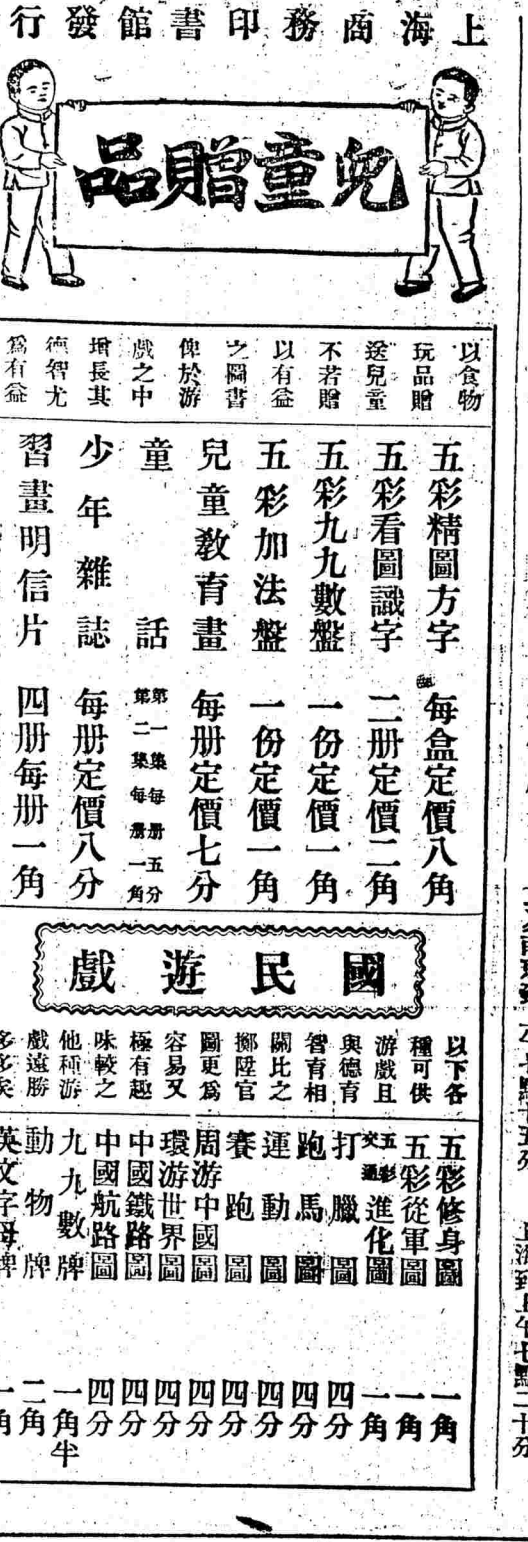 上海商務印書館發行
兒童贈品
以食物
玩品贈
送兒童
不若贈
以有益
之圖書
俾於游
戲之中
增長其
德智尤
爲有益
五彩精圖方字 每盒定價八角
五彩看圖識字 二册定價二角
五彩九九數盤 一份定價一角
五彩加法盤 一份定價一角
兒童教育畫 每册定價七分
童話 第一集每册五分 第二集每册一角
少年雜誌 每册定價八分
習畫明信片 四册每册一角
國民遊戲
以下各
種可供
游戲且
與德育
智育相
關比之
擲陞官
圖更爲
容易又
極有趣
味較之
他種游
戲遠勝
多多矣
五彩修身圖 一角
五彩從軍圖 一角
五彩交通進化圖 一角
打臘圖 四分
跑馬圖 四分
運動圖 四分
賽跑圖 四分
周游中國圖 四分
環游世界圖 四分
中國鐵路圖 四分
中國航路圖 四分
九九數牌 一角半
動物牌 二角
英文字母牌 一角
上海到上午七點二十分